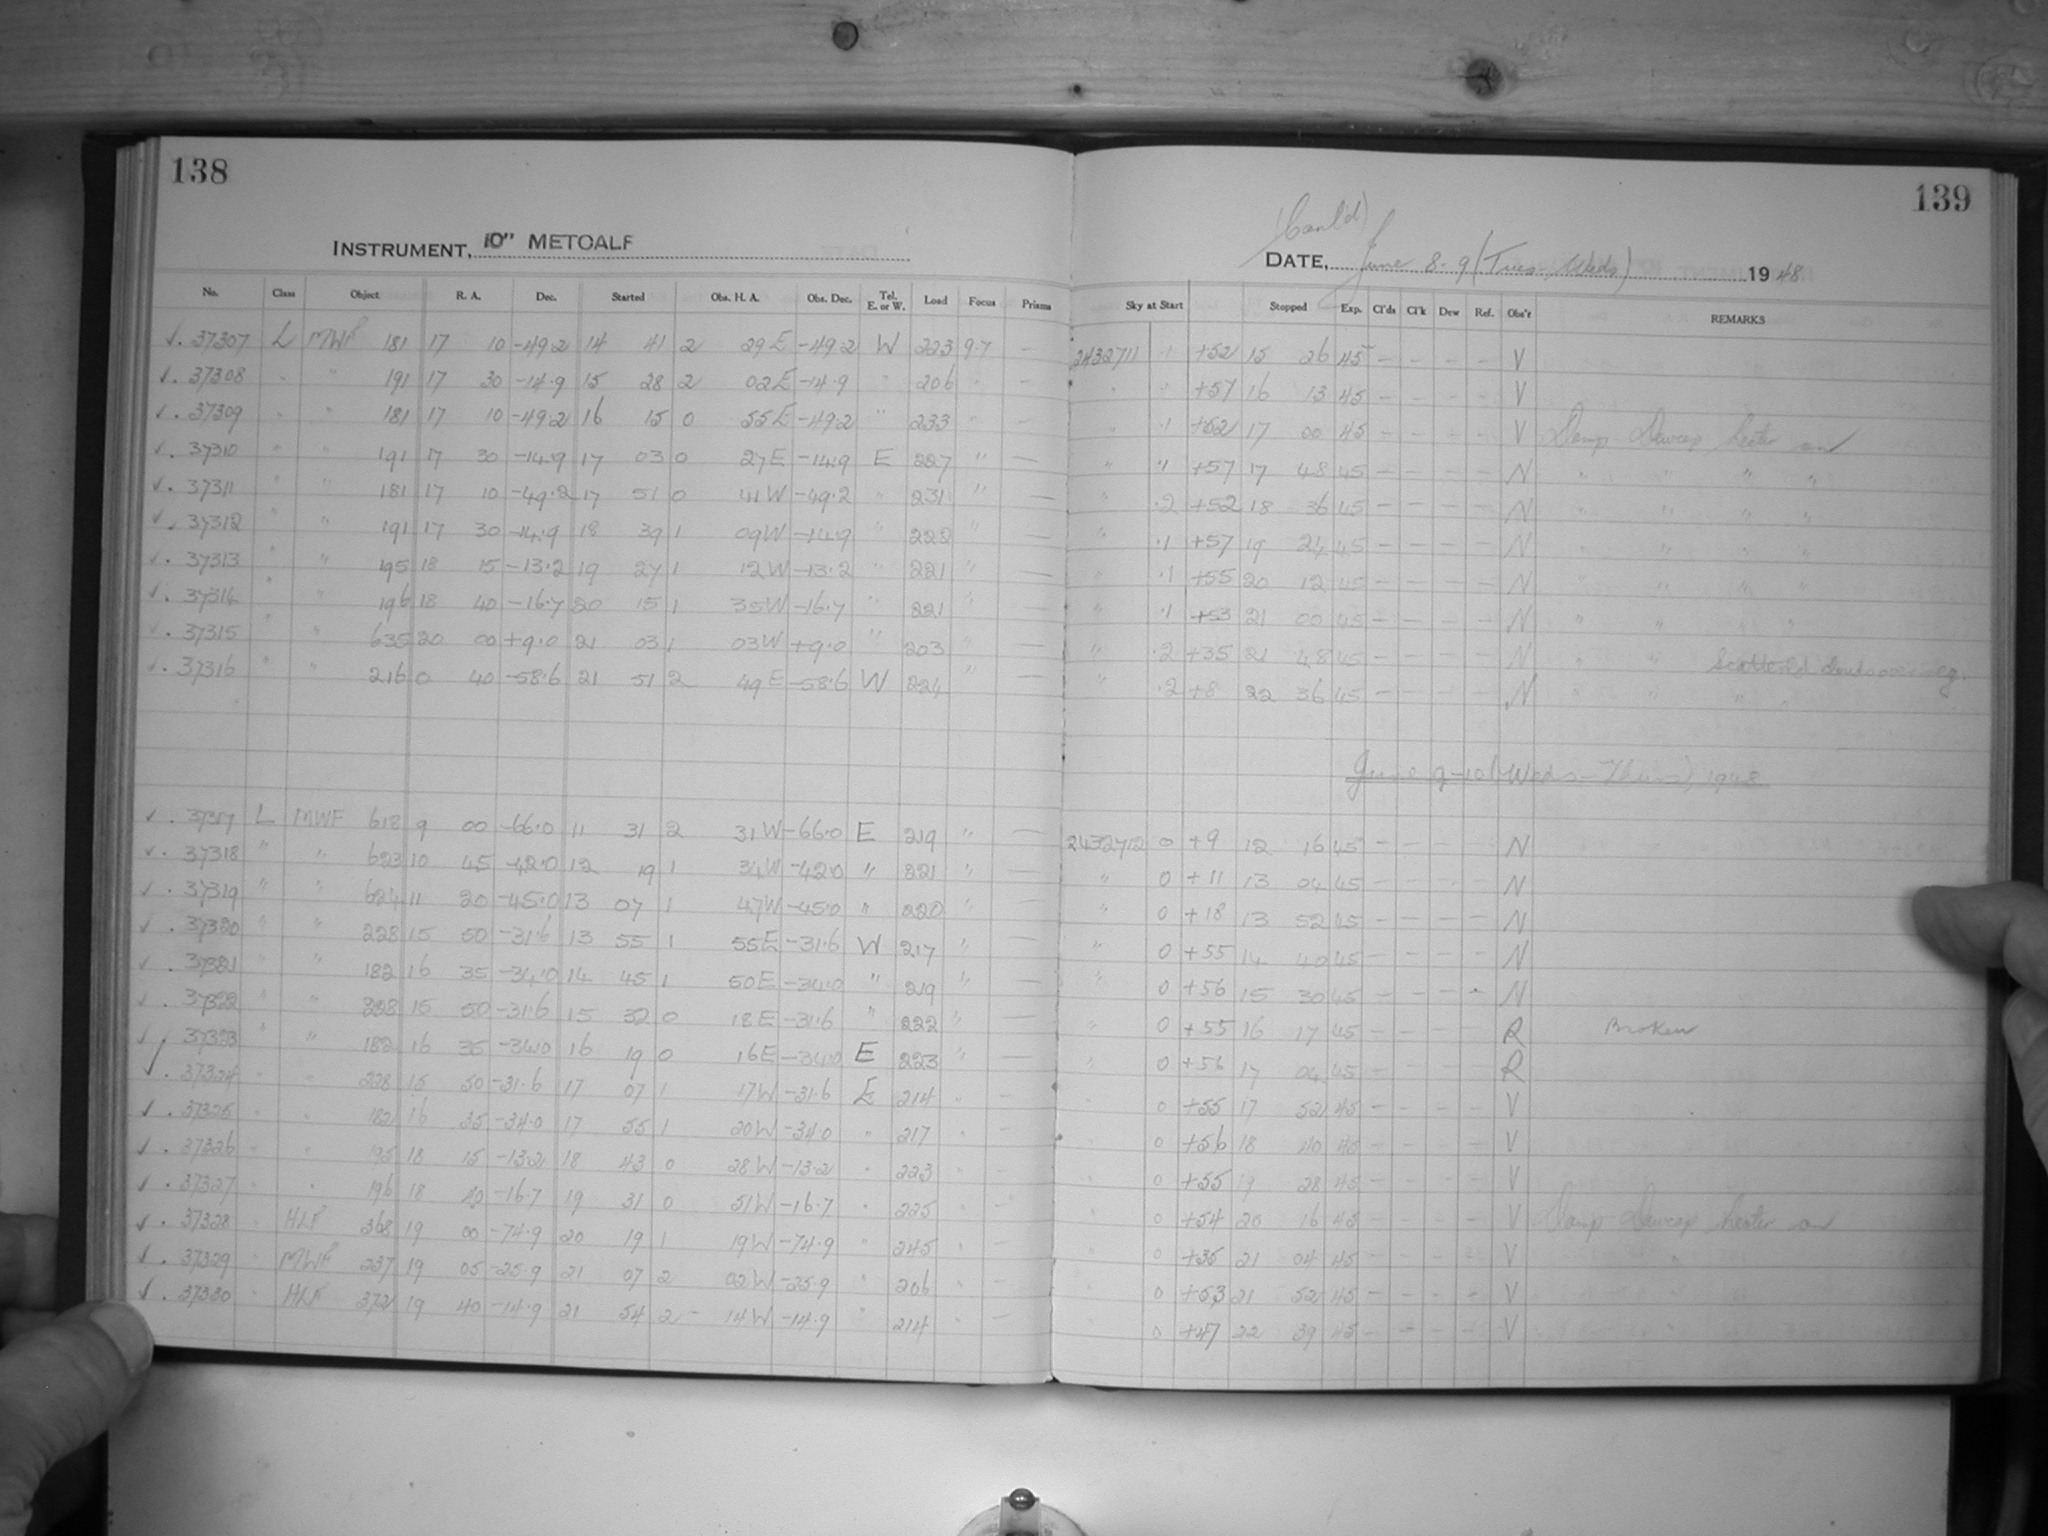 138
139
(Cont'd)
INSTRUMENT, 10" METCALF
DATE, June 8-9 (Tues-Weds) 1948
No. Class Object R. A. Dec. Started Obs. H. A. Obs. Dec. Tel. E. or W. Load Focus Prisms Sky at Start Stopped Exp. Cl'ds Cl'k Dew Ref. Obs'r REMARKS
✓. 37307 L MWF 181 17 10 -49.2 14 41 2 29 E -49.2 W 223 9.7 - 2432711 .1 +52 15 26 45 - - - - V
✓. 37308 " " 191 17 30 -14.9 15 28 2 02 E -14.9 " 206 " - " " +57 16 13 45 - - - - V
✓. 37309 " " 181 17 10 -49.2 16 15 0 55 E -49.2 " 233 " - " .1 +52 17 00 45 - - - - V Damp Dewcap heater on
✓. 37310 " " 191 17 30 -14.9 17 03 0 27 E -14.9 E 227 " - " .1 +57 17 48 45 - - - - N " " " "
✓. 37311 " " 181 17 10 -49.2 17 51 0 41 W -49.2 " 231 " - " .2 +52 18 36 45 - - - - N " " " "
✓. 37312 " " 191 17 30 -14.9 18 39 1 09 W -14.9 " 222 " - " .1 +57 19 24 45 - - - - N " " " "
✓. 37313 " " 195 18 15 -13.2 19 27 1 12 W -13.2 " 221 " - " .1 +55 20 12 45 - - - - N " " " "
✓. 37314 " " 196 18 40 -16.7 20 15 1 35 W -16.7 " 221 " - " .1 +53 21 00 45 - - - - N " " " "
✓. 37315 " " 635 20 00 +9.0 21 03 1 03 W +9.0 " 203 " - " .2 +35 21 48 45 - - - - N " " Scattered clouds
✓. 37316 " " 216 0 40 -58.6 21 51 2 49 E -58.6 W 224 " - " .2 +8 22 36 45 - - - - N " " " "
June 9-10 (Weds-Thurs) 1948
✓. 37317 L MWF 618 9 00 -66.0 11 31 2 31 W -66.0 E 219 " - 2432712 0 +9 12 16 45 - - - - N
✓. 37318 " " 623 10 45 -42.0 12 19 1 34 W -42.0 " 221 " - " 0 +11 13 04 45 - - - - N
✓. 37319 " " 624 11 20 -45.0 13 07 1 47 W -45.0 " 220 " - " 0 +18 13 52 45 - - - - N
✓. 37320 " " 228 15 50 -31.6 13 55 1 55 E -31.6 W 217 " - " 0 +55 14 40 45 - - - - N
✓. 37321 " " 182 16 35 -34.0 14 45 1 50 E -34.0 " 219 " - " 0 +56 15 30 45 - - - - N
✓. 37322 " " 228 15 50 -31.6 15 32 0 18 E -31.6 " 222 " - " 0 +55 16 17 45 - - - - R Broken
✓. 37323 " " 182 16 35 -34.0 16 19 0 16 E -34.0 E 223 " - " 0 +56 17 04 45 - - - - R
✓. 37324 " " 228 15 50 -31.6 17 07 1 17 W -31.6 E 214 " - " 0 +55 17 52 45 - - - - V
✓. 37325 " " 182 16 35 -34.0 17 55 1 20 W -34.0 " 217 " - " 0 +56 18 40 45 - - - - V
✓. 37326 " " 195 18 15 -13.2 18 43 0 28 W -13.2 " 223 " - " 0 +55 19 28 45 - - - - V
✓. 37327 " " 196 18 40 -16.7 19 31 0 51 W -16.7 " 225 " - " 0 +54 20 16 45 - - - - V Damp Dewcap heater on
✓. 37328 " HLF 368 19 00 -74.9 20 19 1 19 W -74.9 " 245 " - " 0 +35 21 04 45 - - - - V
✓. 37329 " MWF 237 19 05 -25.9 21 07 2 02 W -25.9 " 206 " - " 0 +53 21 52 45 - - - - V
✓. 37330 " HLF 372 19 40 -14.9 21 54 2 - 14 W -14.9 " 214 " - 0 +47 22 39 45 - - - - V